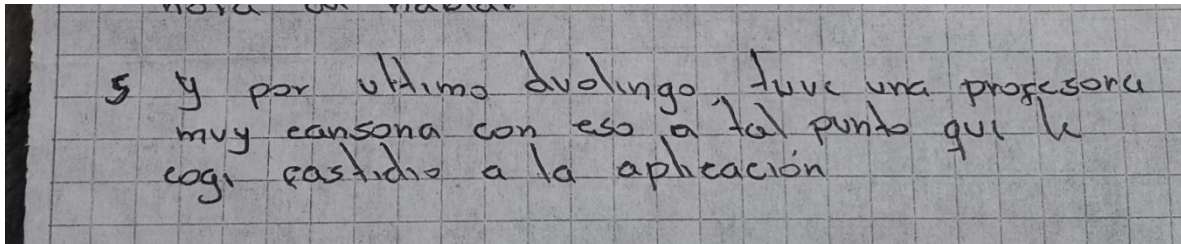 5 y por ultimo duolingo, tuve una profesora
muy cansona con eso a tal punto que le
cogi fastidio a la aplicación